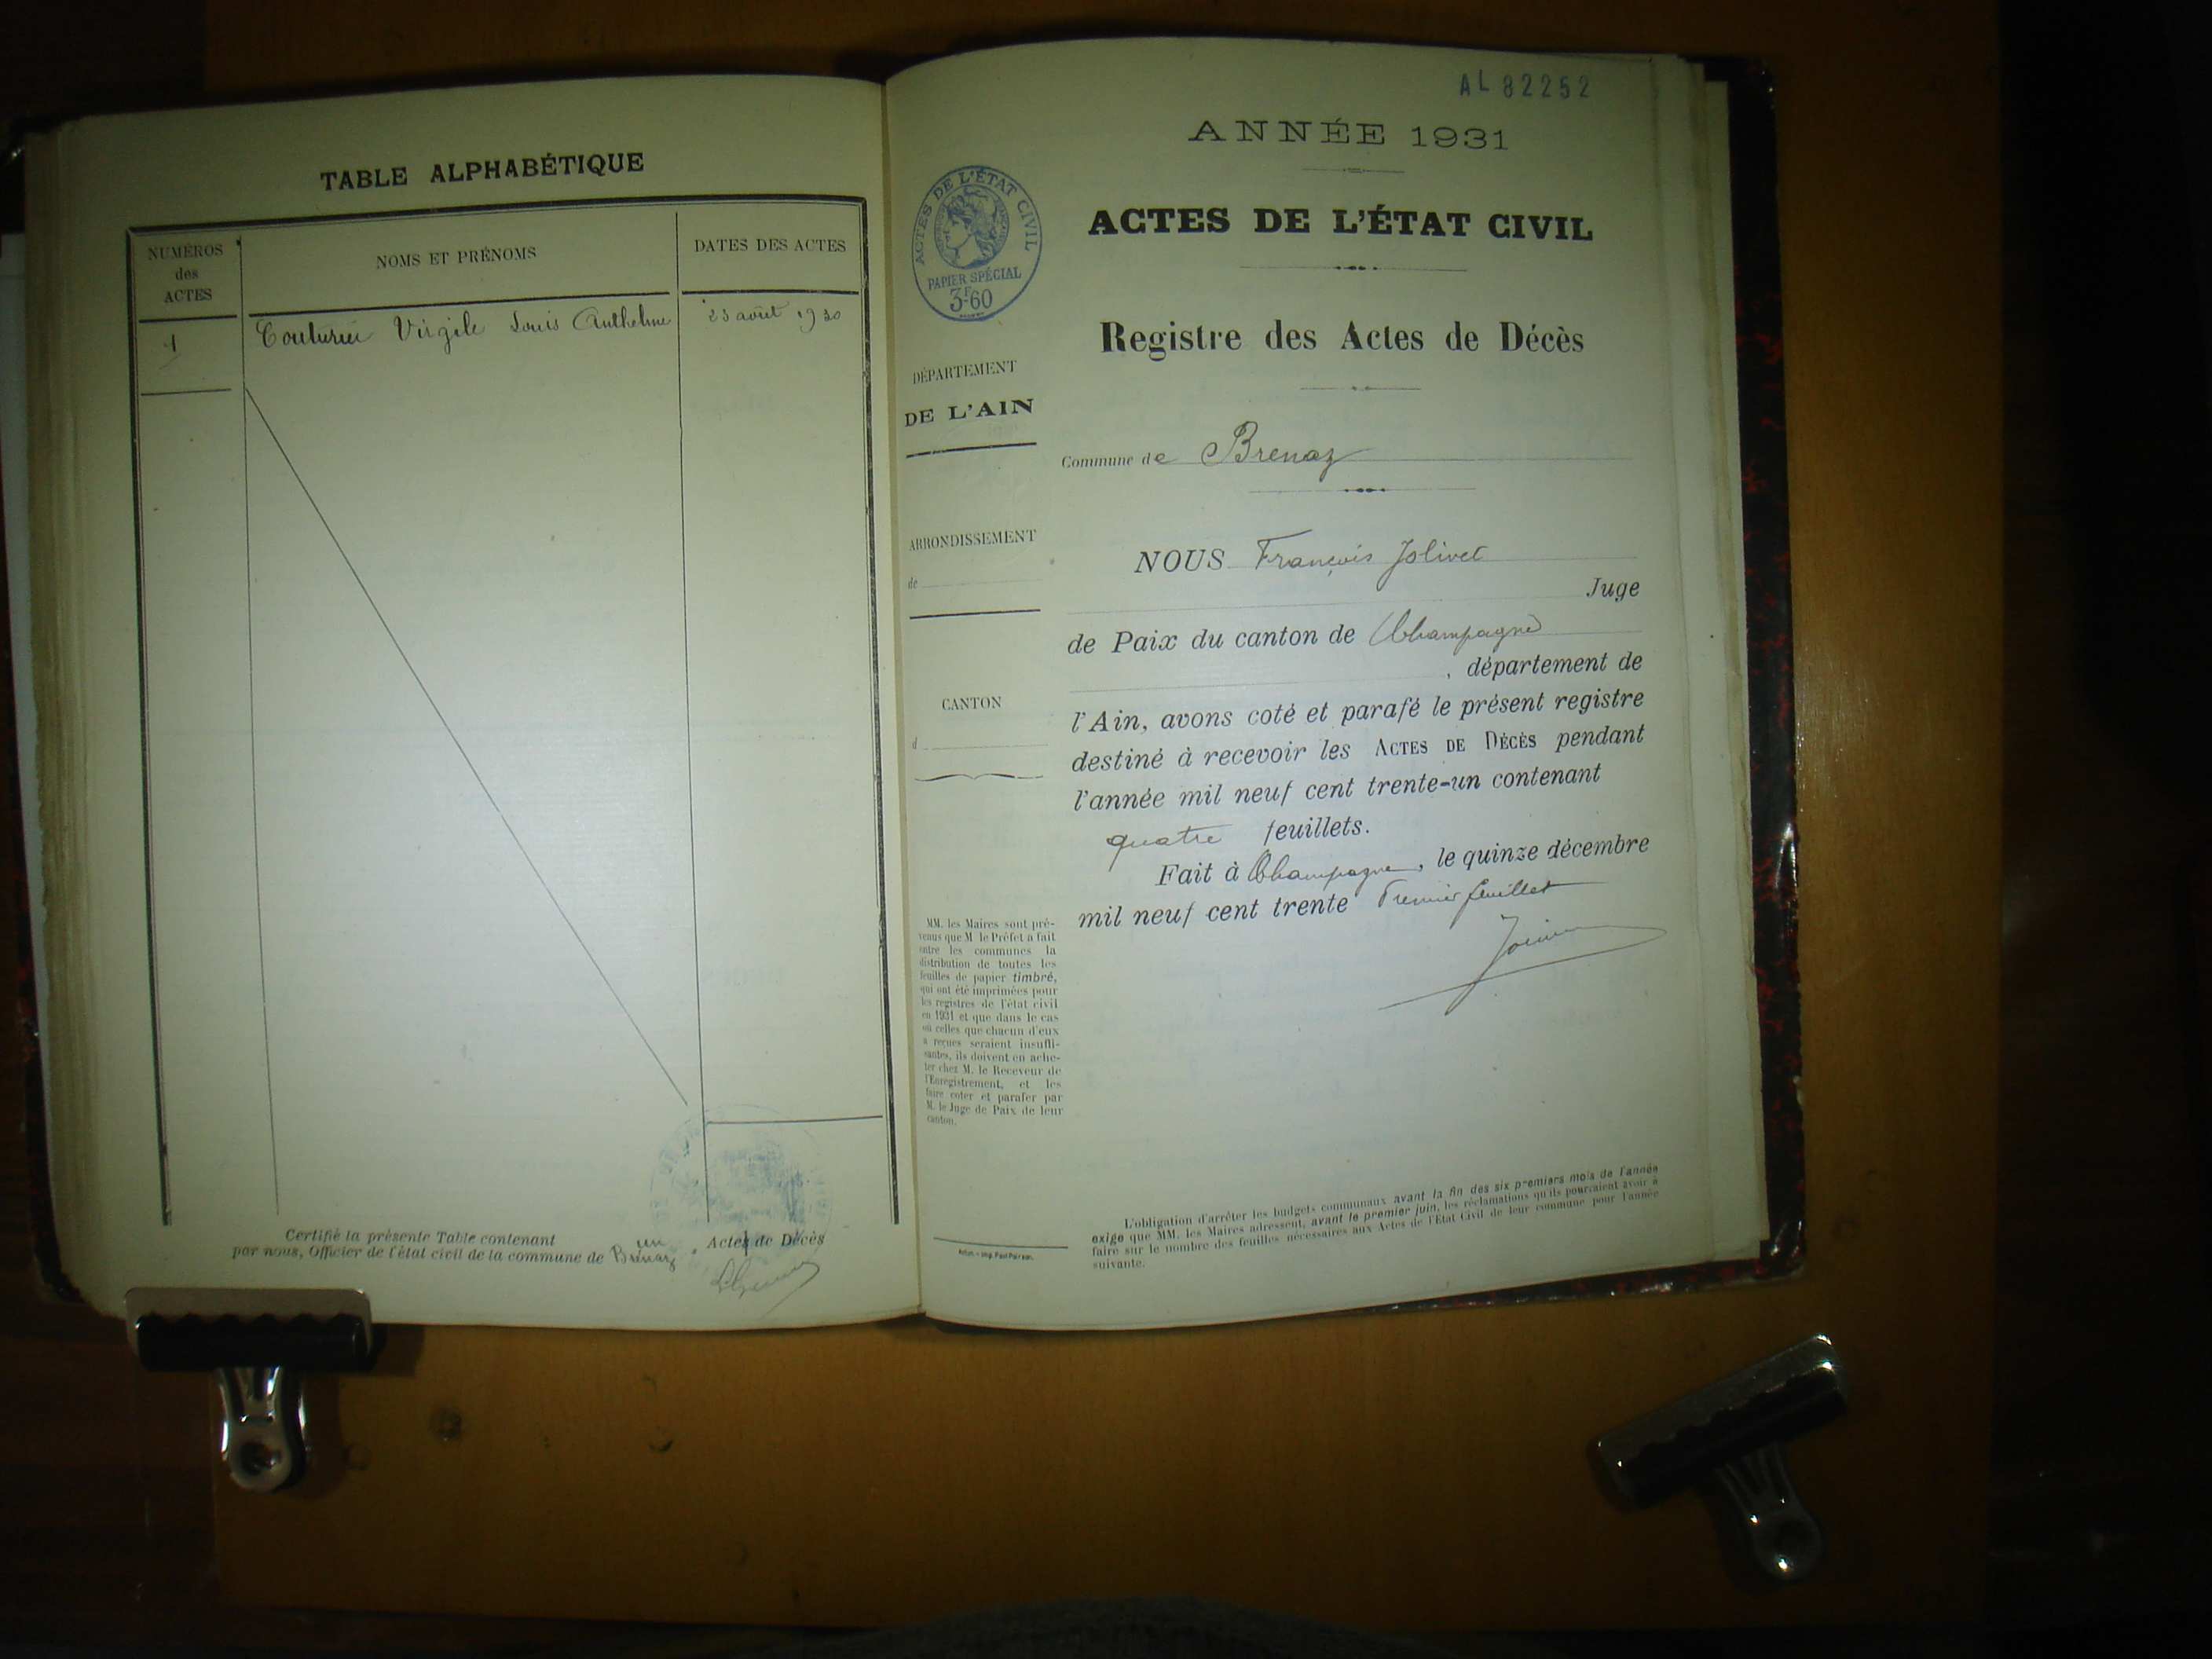 TABLE ALPHABÉTIQUE
NUMÉROS
des
ACTES
NOMS ET PRÉNOMS
DATES DES ACTES
1
Couturier Virgile Louis Anthelme
23 août 1930
Certifié la présente Table contenant un Actes de Décès
par nous, Officier de l'état civil de la commune de Brénaz.
AL 82252
ANNÉE 1931
ACTES DE L'ÉTAT CIVIL
PAPIER SPÉCIAL
3F60
ACTES DE L'ÉTAT CIVIL
Registre des Actes de Décès
DÉPARTEMENT
DE L'AIN
Commune de Brenaz
ARRONDISSEMENT
de
CANTON
d
NOUS François Jolivet
Juge
de Paix du canton de Champagne
, département de
l'Ain, avons coté et parafé le présent registre
destiné à recevoir les ACTES DE DÉCÈS pendant
l'année mil neuf cent trente-un contenant
quatre feuillets.
Fait à Champagne, le quinze décembre
mil neuf cent trente Premier feuillet
MM. les Maires sont pré-
venus que M. le Préfet a fait
entre les communes la
distribution de toutes les
feuilles de papier timbré,
qui ont été imprimées pour
les registres de l'état civil
en 1931 et que dans le cas
où celles que chacun d'eux
a reçues seraient insuffi-
santes, ils doivent en ache-
ter chez M. le Receveur de
l'Enregistrement, et les
faire coter et parafer par
M. le Juge de Paix de leur
canton.
L'obligation d'arrêter les budgets communaux avant la fin des six premiers mois de l'année
exige que MM. les Maires adressent, avant le premier juin, les réclamations qu'ils pourraient avoir à
faire sur le nombre des feuilles nécessaires aux Actes de l'État Civil de leur commune pour l'année
suivante.